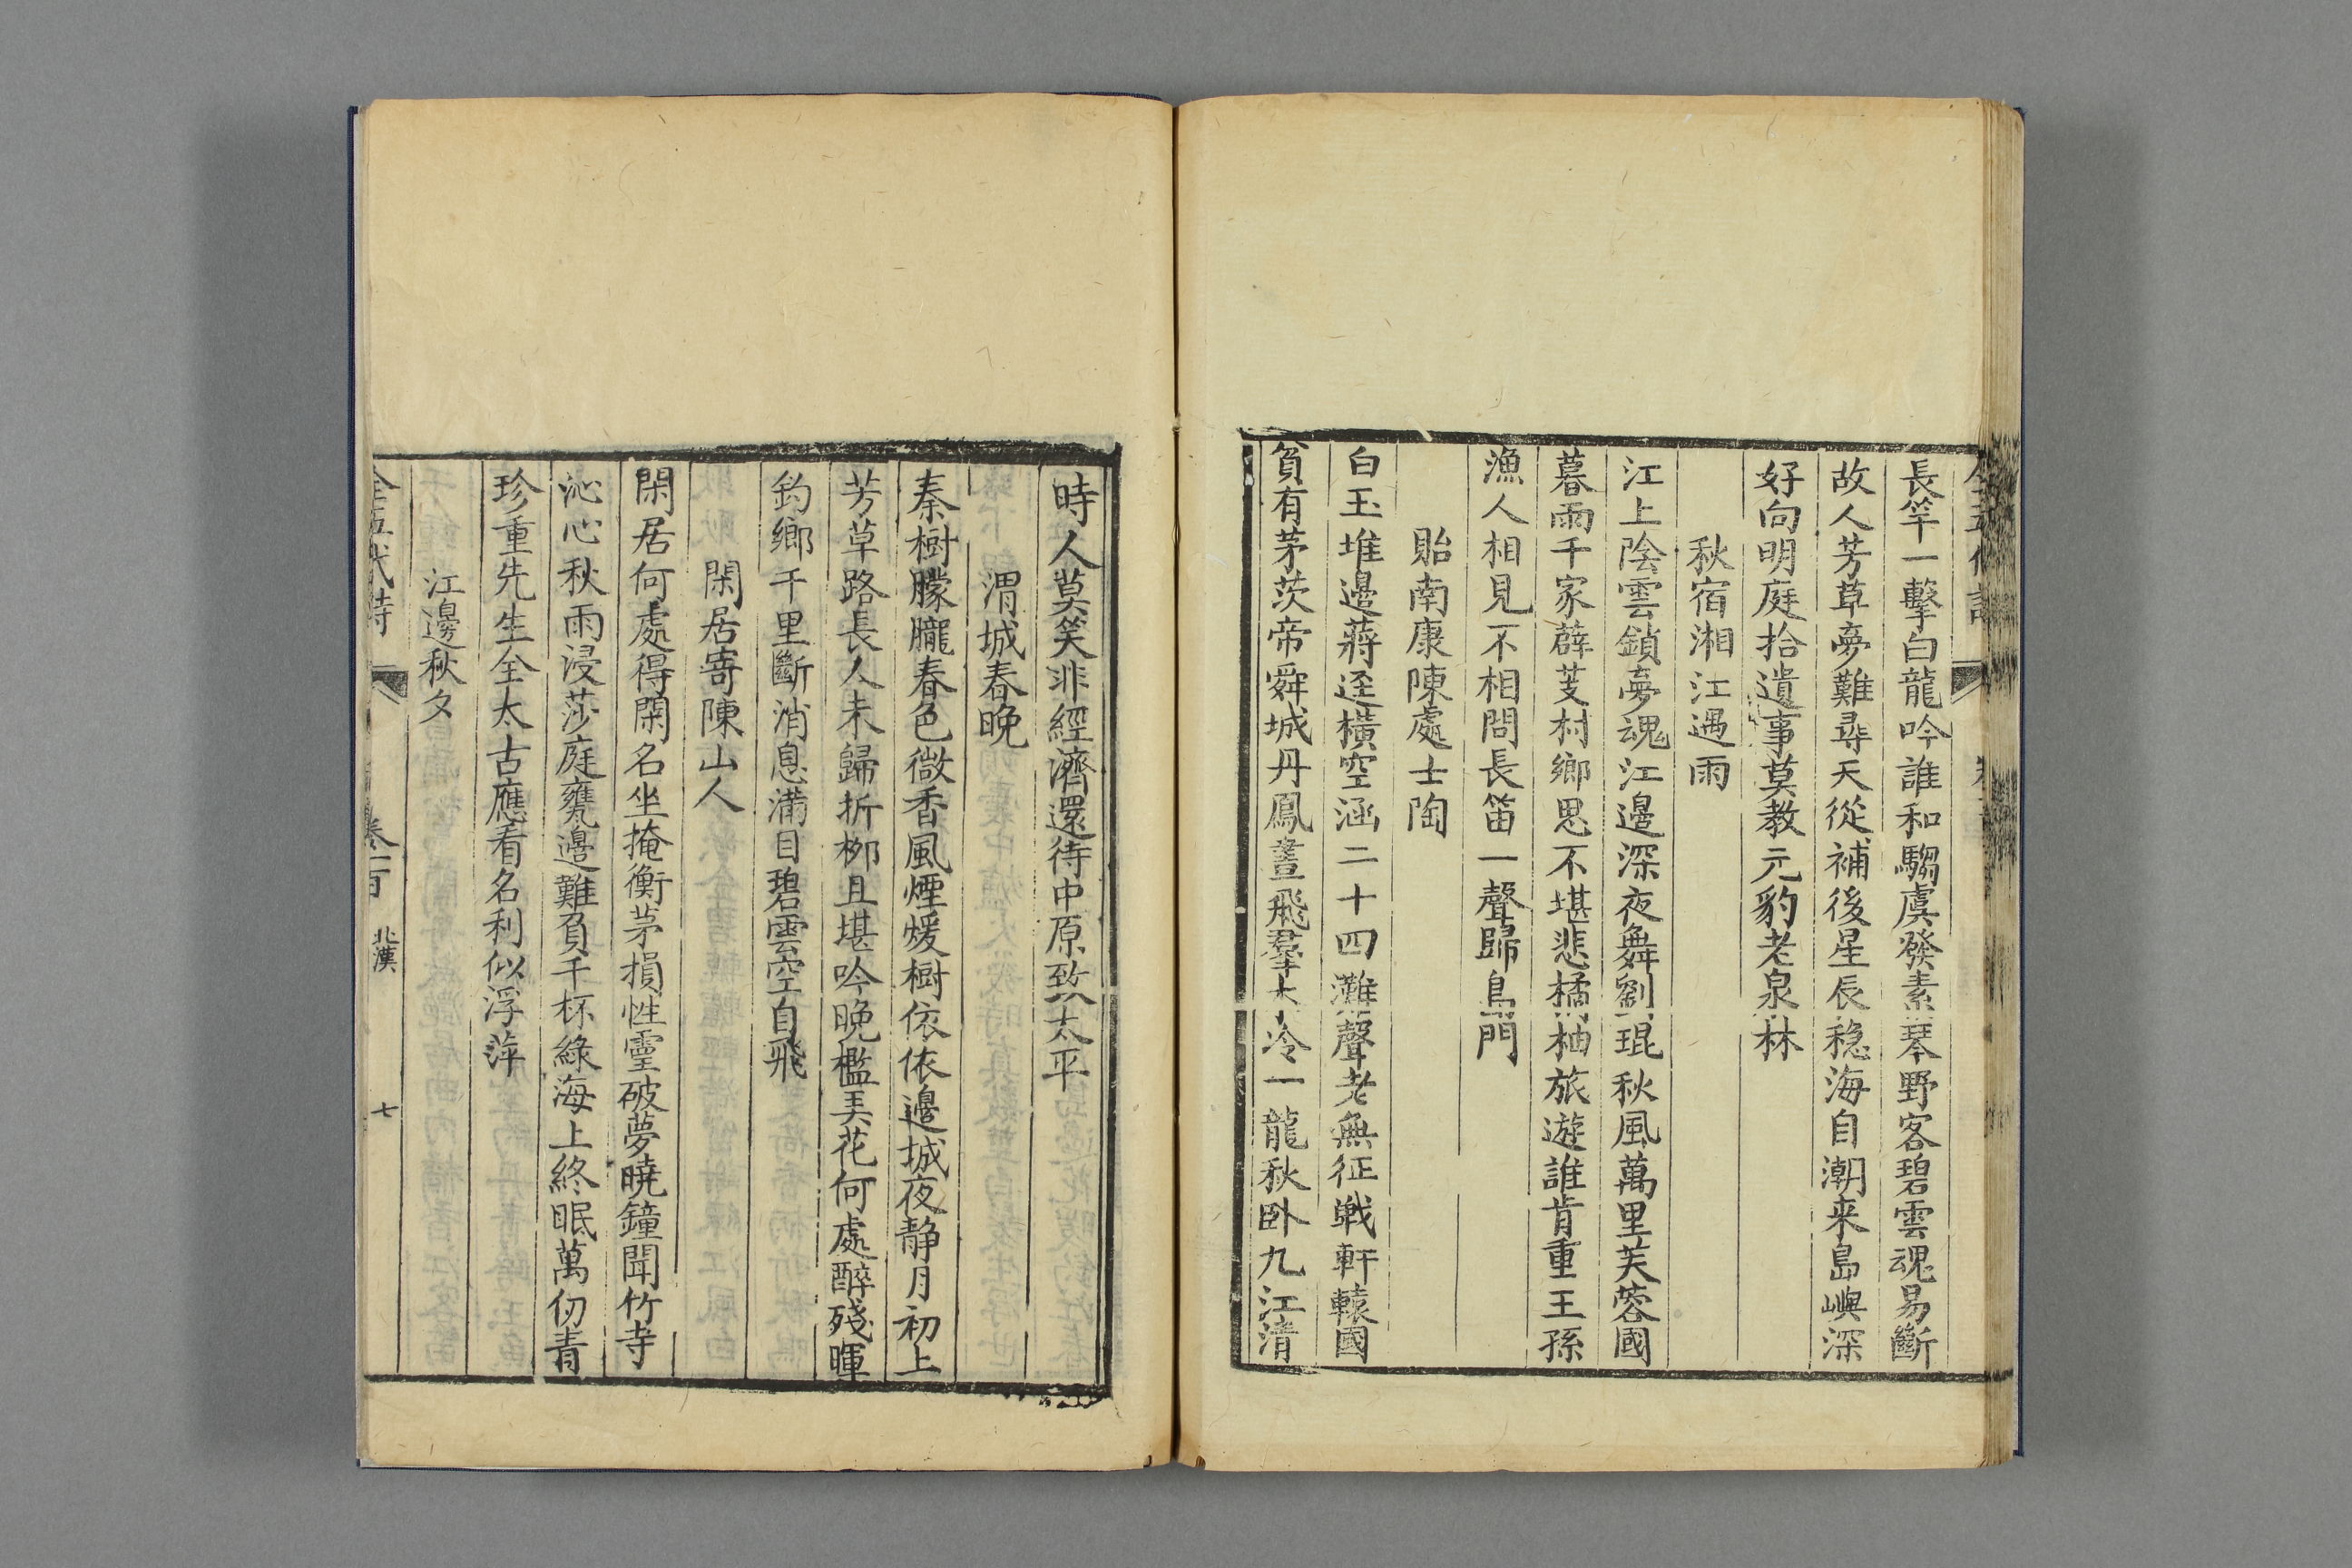 長竿一擊白龍吟誰和騶虞發素琴野客碧雲魂易斷
故人芳草夢難尋天從補後星辰穏海自潮来島嶼深
好向明庭拾遺事莫教元豹老泉林
秋宿湘江遇雨
江上陰雲鎖夢魂江邊深夜舞劉琨秋風萬里芙蓉國
暮雨千家薜荔村鄉思不堪悲橘柚旅遊誰肯重王孫
漁人相見不相問長笛一聲歸島門
貽南康陳處士陶
白玉堆邊蔣逕橫空涵二十四灘聲老無征戦軒轅國
貧有茅茨帝舜城丹鳳晝飛羣木冷一龍秋卧九江清
時人莫笑非經濟還待中原致太平
渭城春晚
秦樹朦朧春色微香風煙煖樹依依邊城夜静月初上
芳草路長人未歸折栁且堪吟晚檻弄花何處醉殘暉
釣鄉千里斷消息滿目碧雲空自飛
閑居寄陳山人
閑居何處得閑名坐掩衡茅損性靈破夢曉鐘聞竹寺
沁心秋雨浸莎庭甕邊難負千杯綠海上終眠萬仞青
珍重先生全太古應看名利似浮萍
江邊秋夕
全五代詩
卷一百
北漢
七